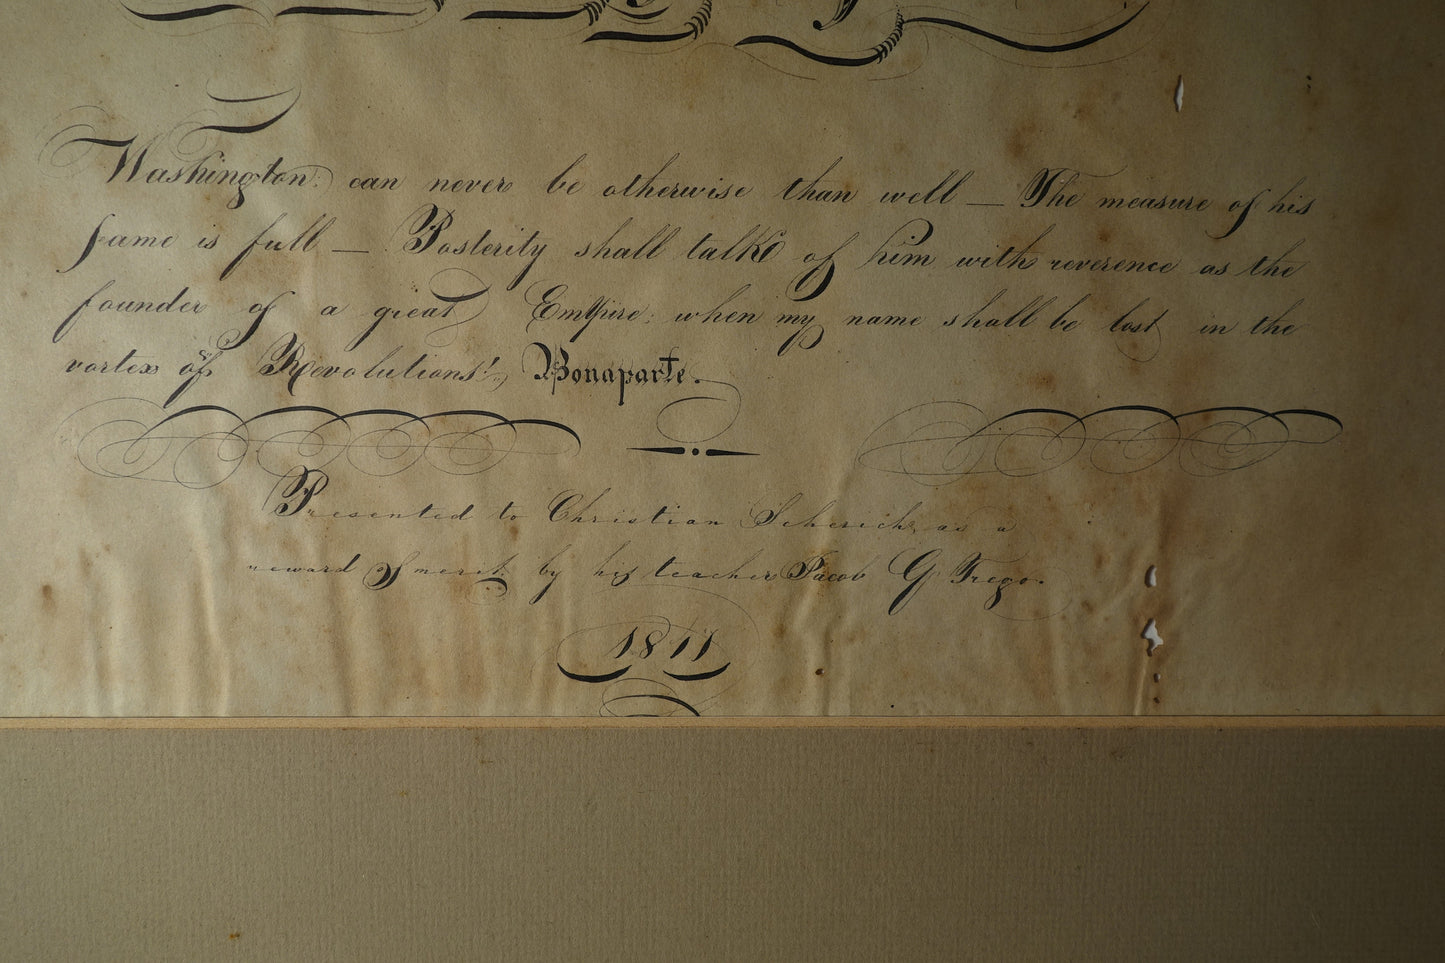 Washington can never be otherwise than well — The measure of his
fame is full — Posterity shall talk of him with reverence as the
founder of a great Empire; when my name shall be lost in the
vortex of Revolutions! Bonaparte.
Presented to Christian Scherich, as a
reward of merit by his teacher Jacob G Frego.
1811